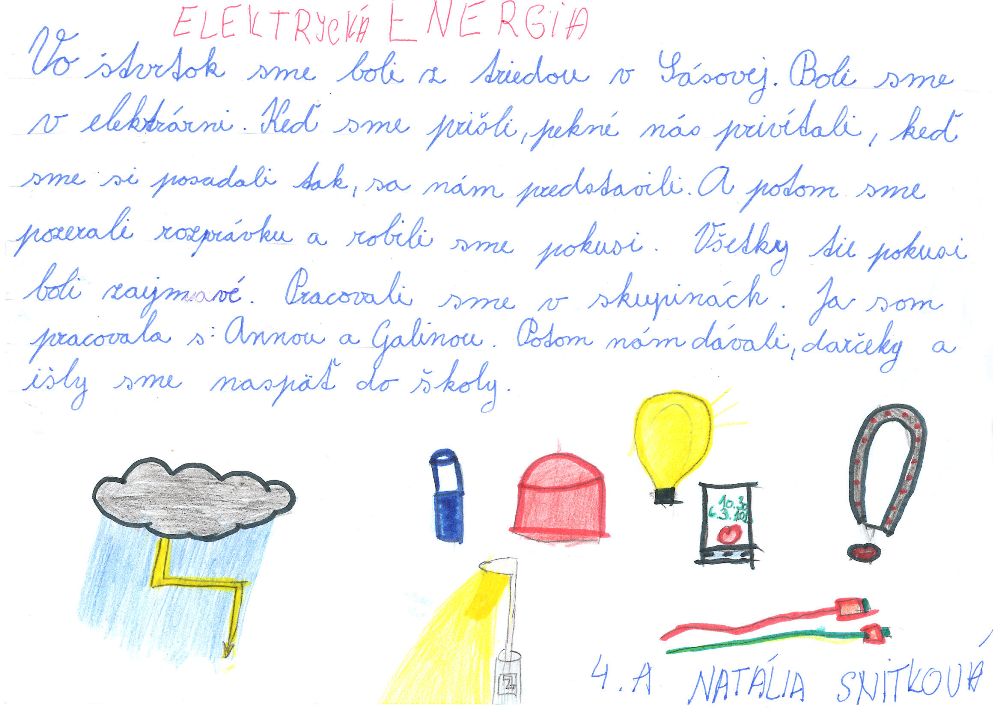 ELEKTRYCKÁ ENERGIA
Vo štvrtok sme boli z triedou v Sásovej. Boli sme
v elektrárni. Keď sme prišli, pekné nás privítali, keď
sme si posadali tak, sa nám predstavili. A potom sme
pozerali rozprávku a robili sme pokusi. Všetky tie pokusi
boli zaujmavé. Pracovali sme v skupinách. Ja som
pracovala s: Annou a Galinou. Potom nám dávali, darčeky a
išly sme naspäť do školy.
10.30
6.3.
4.A NATÁLIA SNITKOVÁ